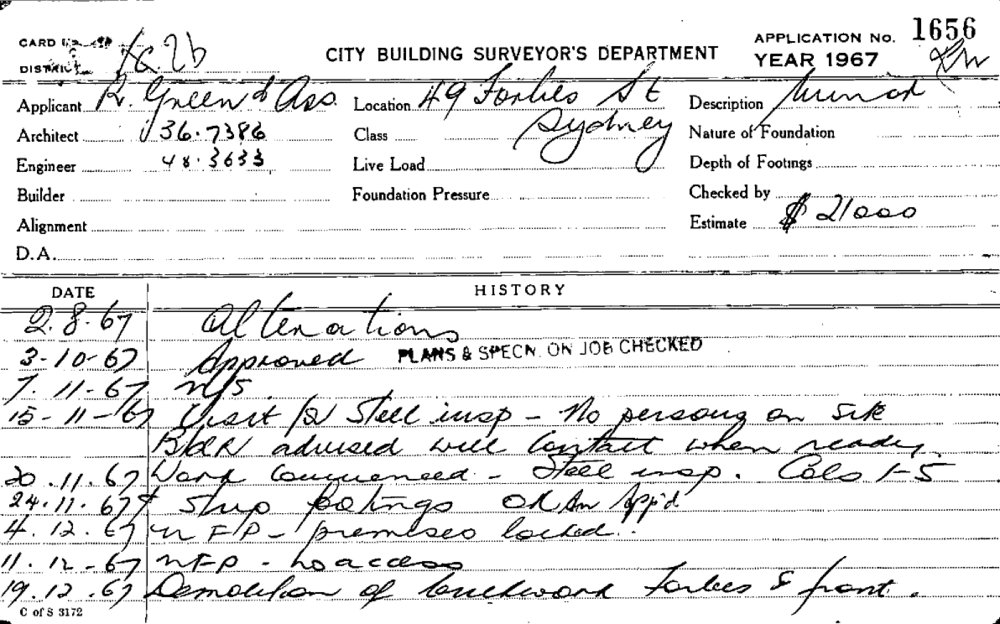 CARD No.
DISTRICT 2b
CITY BUILDING SURVEYOR'S DEPARTMENT
APPLICATION No. 1656
YEAR 1967
Applicant R. Green & Ass. Location 49 Forbes St Description Minor
Architect 36.7386 Class Sydney Nature of Foundation
Engineer 48.3633 Live Load Depth of Footings
Builder Foundation Pressure Checked by
Alignment Estimate $ 21000
D.A.
DATE HISTORY
2.8.67 Alterations
3-10-67 Approved PLANS & SPECN. ON JOB CHECKED
7.11-67 N/S
15-11-67 Visit for Steel insp - No persons on site
Bldr advised will contact when ready
20.11.67 Work commenced - Steel insp. Cols 1-5
24.11.67 & Strip footings OK App'd
4.12.67 N F/P - premises locked.
11.12-67 NFP - no access
19.12.67 Demolition of brickwork Forbes S front.
C of S 3172